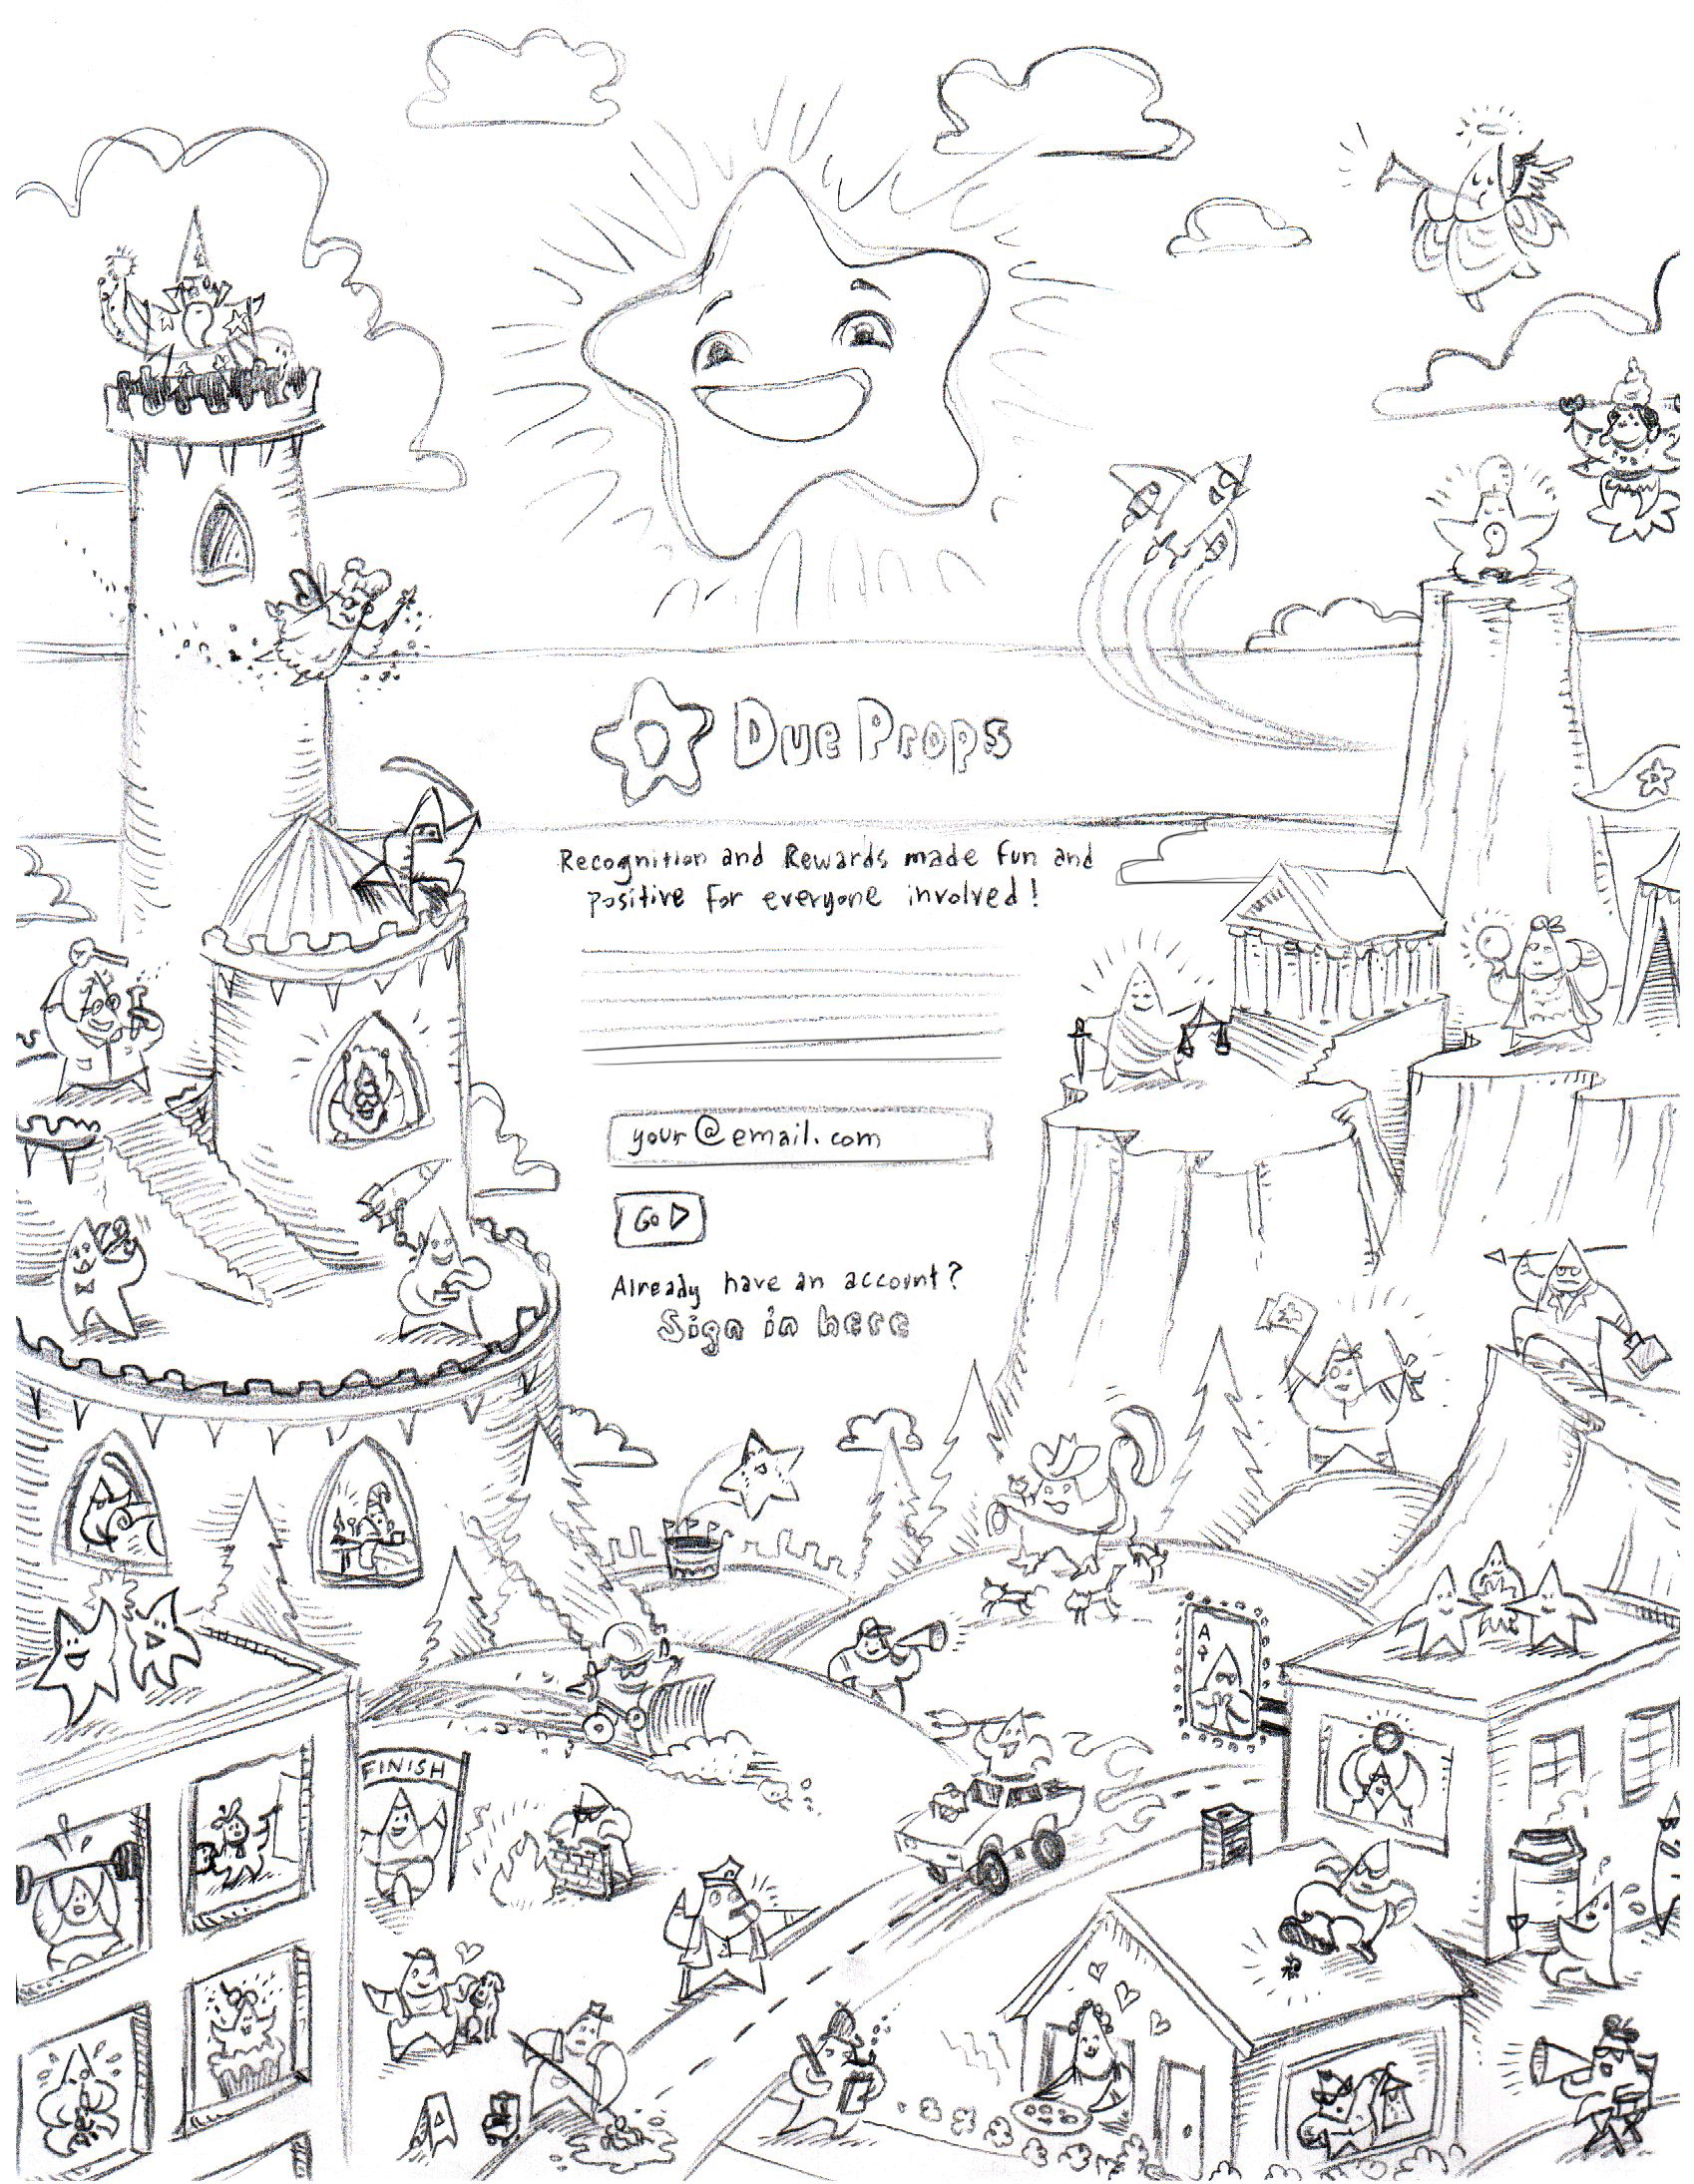 D Due Props
Recognition and Rewards made fun and
positive for everyone involved!
your@email.com
Go
Already have an account?
Sign in here
A
FINISH